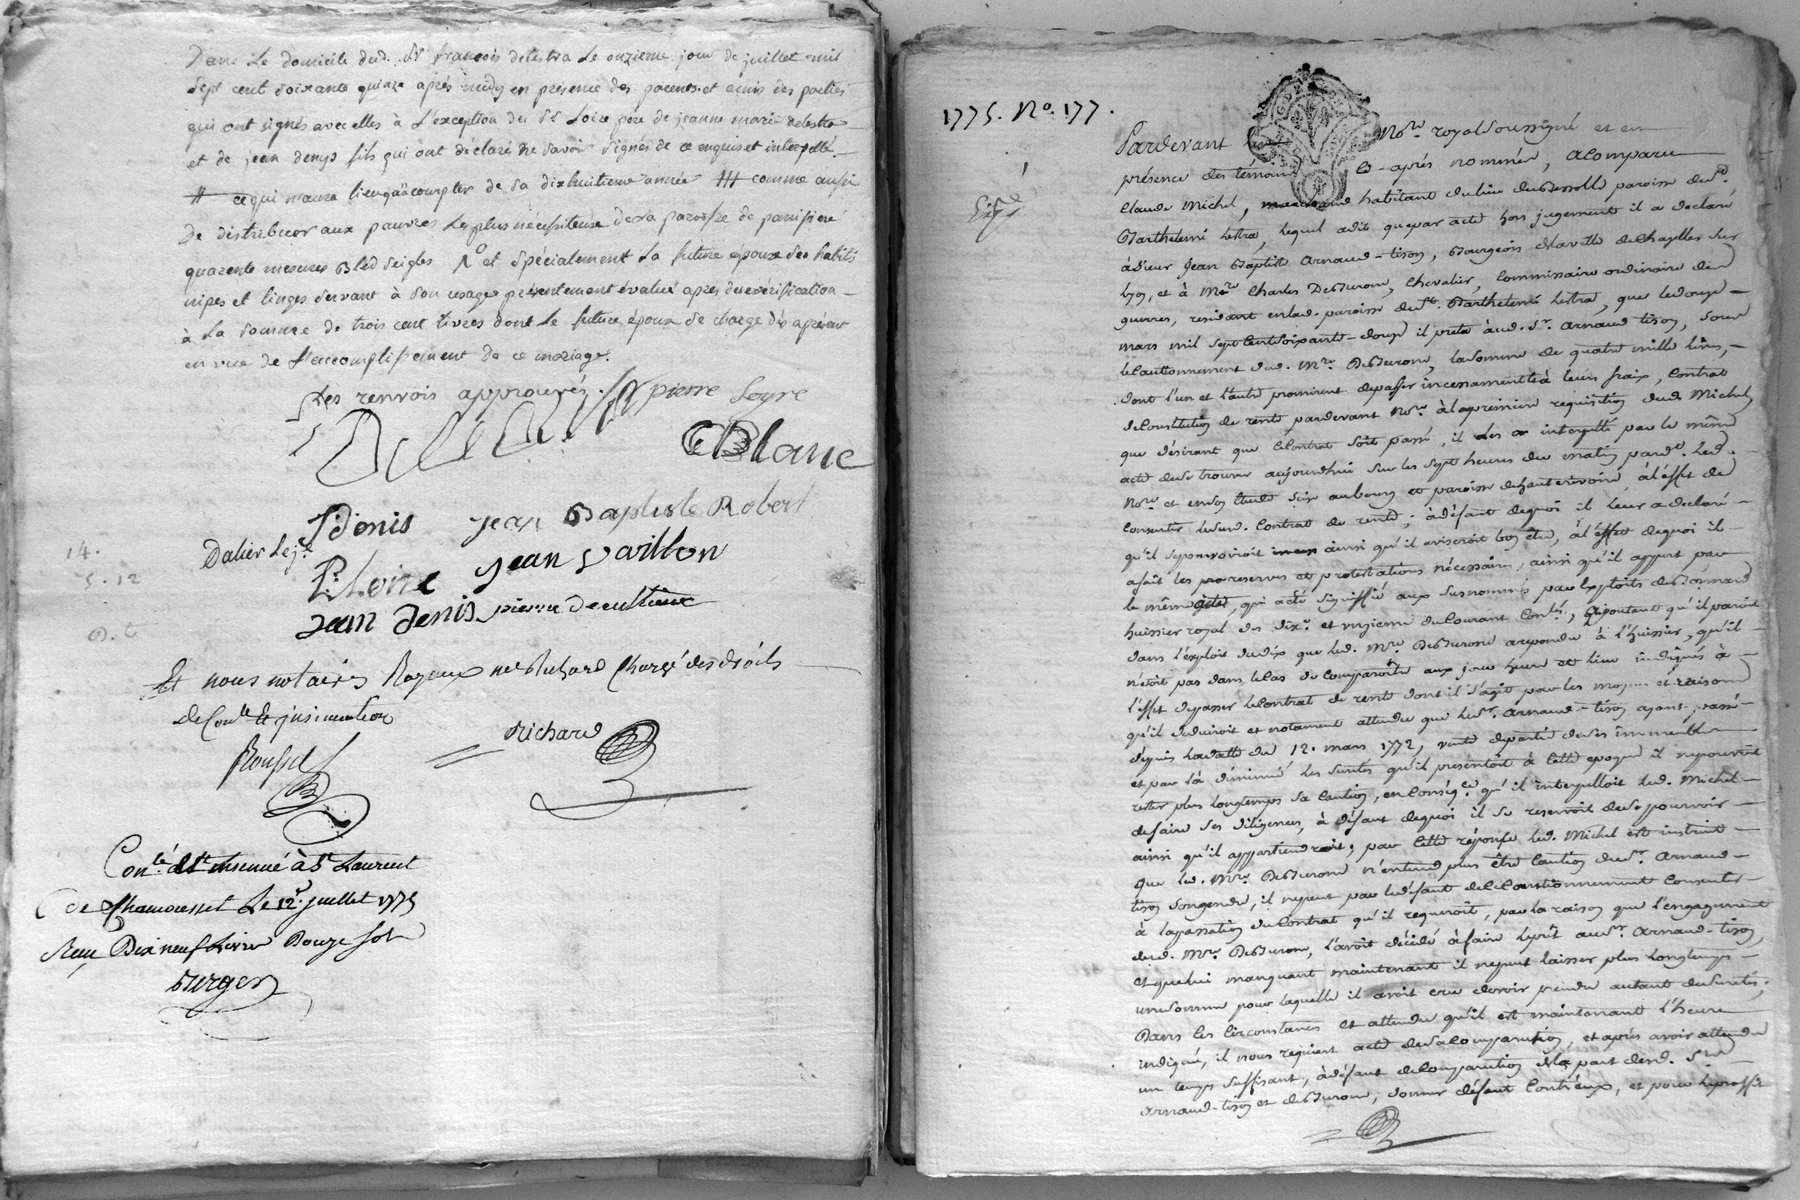 Dans le domicile dud. Sr françois delestra le onzieme jour de juillet mil
sept cent soixante quinze après midy en présence des parents et amis des parties
qui ont signés avec elles à l'exception du Sr Loire père de jeanne marie delestra
et de jean denys fils qui ont déclaré ne savoir signer de ce enquis et interpellé.
# ce qui n'aura lieu qu'à compter de sa dixhuitieme année ## comme aussi
de distribuer aux pauvres les plus nécessiteux de sa paroisse de panissiere
quarante mesures bled seigle, et spécialement la future épouse ses habits
nipes et linges servant à son usage présentement évalué après due vérification
à la somme de trois cent livres dont le future époux se charge dès aprésent
en vue de l'accomplissement de ce mariage.
Les renvois approuvés
pierre Loyre
Blanc
J denis jean Baptiste Robert
Dalier Le je
P. Loire jean Vaillon
14.
5. 12
jean denis
pierre
Et nous notaires Royaux me Richard Chargé des droits
de Conlle et jnsinuation
Richard
Con.té et insinué à St Laurent
de Chamousset Le 12e juillet 1775
Reçu Dix neuf Livres Douze sols
Burger
1775. No. 177.
Expé
Pardevant Nore. royal soussigné et en
présence des témoins ci-après nommés, a comparu
Claude Michel, habitant du lieu du paroisse de St
Barthelemi Lestra, lequel a dit que par acte hors jugement il a declaré
à Sieur Jean Baptiste Arnaud-tison, Bourgeois de la ville de Chazelles sur
Lyon, et à Mere Charles Chevalier, Commissaire ordinaire des
guerres, residant en lad. paroisse de St. Barthelemi Lestra, que le douze
mars mil sept cent soixante-douze il preta aud. Sr. Arnaud tison, sous
le cautionnement dud. Mre la somme de quatre mille livres,
dont l'un et l'autre promirent de passer incessamment à leurs fraix, Contrat
de Constitution de rente pardevant Nore. à la premiere requisition dud. Michel
que désirant que le Contrat soit passé, il les a interpellé par le même
acte de se trouver aujourdhui sur les sept heures du matin pardt. led.
Nore. et en son Etude size au bourg et paroisse d'hauterivoire, à l'effet de
Consentir led. Contrat de rente; à défaut de quoi il leur a declaré
qu'il se pourvoiroit ainsi qu'il aviseroit bon être, à l'effet de quoi il
a fait les reserves et protestations nécessaires, ainsi qu'il appert par
le même acte, qui a été signiffié aux susnommés par exploits de
huissier royal des dix. et onzieme du Courant Conlés, ajoutant qu'il paroit
dans l'exploit du dix que led. Mre a repondu à l'huissier, qu'il
n'étoit pas dans le cas de comparoitre aux jour heure et lieu indiqués à
l'effet de passer le Contrat de rente dont il s'agit par les moyens et raisons
qu'il deduiroit et notament attendu que led. Sr. Arnaud-tison ayant passé
depuis la datte du 12. mars 1772, vente de partie de ses immeubles
et par là diminué les suretés qu'il présentoit à cette epoque il ne pouvoit
rester plus longtemps sa caution, en conséqce. qu'il interpelloit led. Michel
de faire ses diligences, à défaut de quoi il se reservoit de se pourvoir
ainsi qu'il appartiendroit; par cette réponse led. Michel est instruit
que led. Mre n'entend plus être caution du Sr. Arnaud
tison son gendre, il ne peut par le défaut de ce Cautionnement Consentir
à la passation du Contrat qu'il requeroit, par la raison que l'engagement
dud. Mre. l'avoit décidé à faire le prêt au Sr. Arnaud-tison,
et que lui manquant maintenant il ne peut laisser plus longtemps
une somme pour laquelle il avoit cru devoir prendre autant de suretés;
Dans ces circonstances et attendu qu'il est maintenant l'heure
indiquée, il nous requiert acte de sa comparution, et après avoir attendu
un temps suffisant, à défaut de Comparution de la part desd. Srs
Arnaud-tison et donner défaut Contr'eux, et pour le proffit